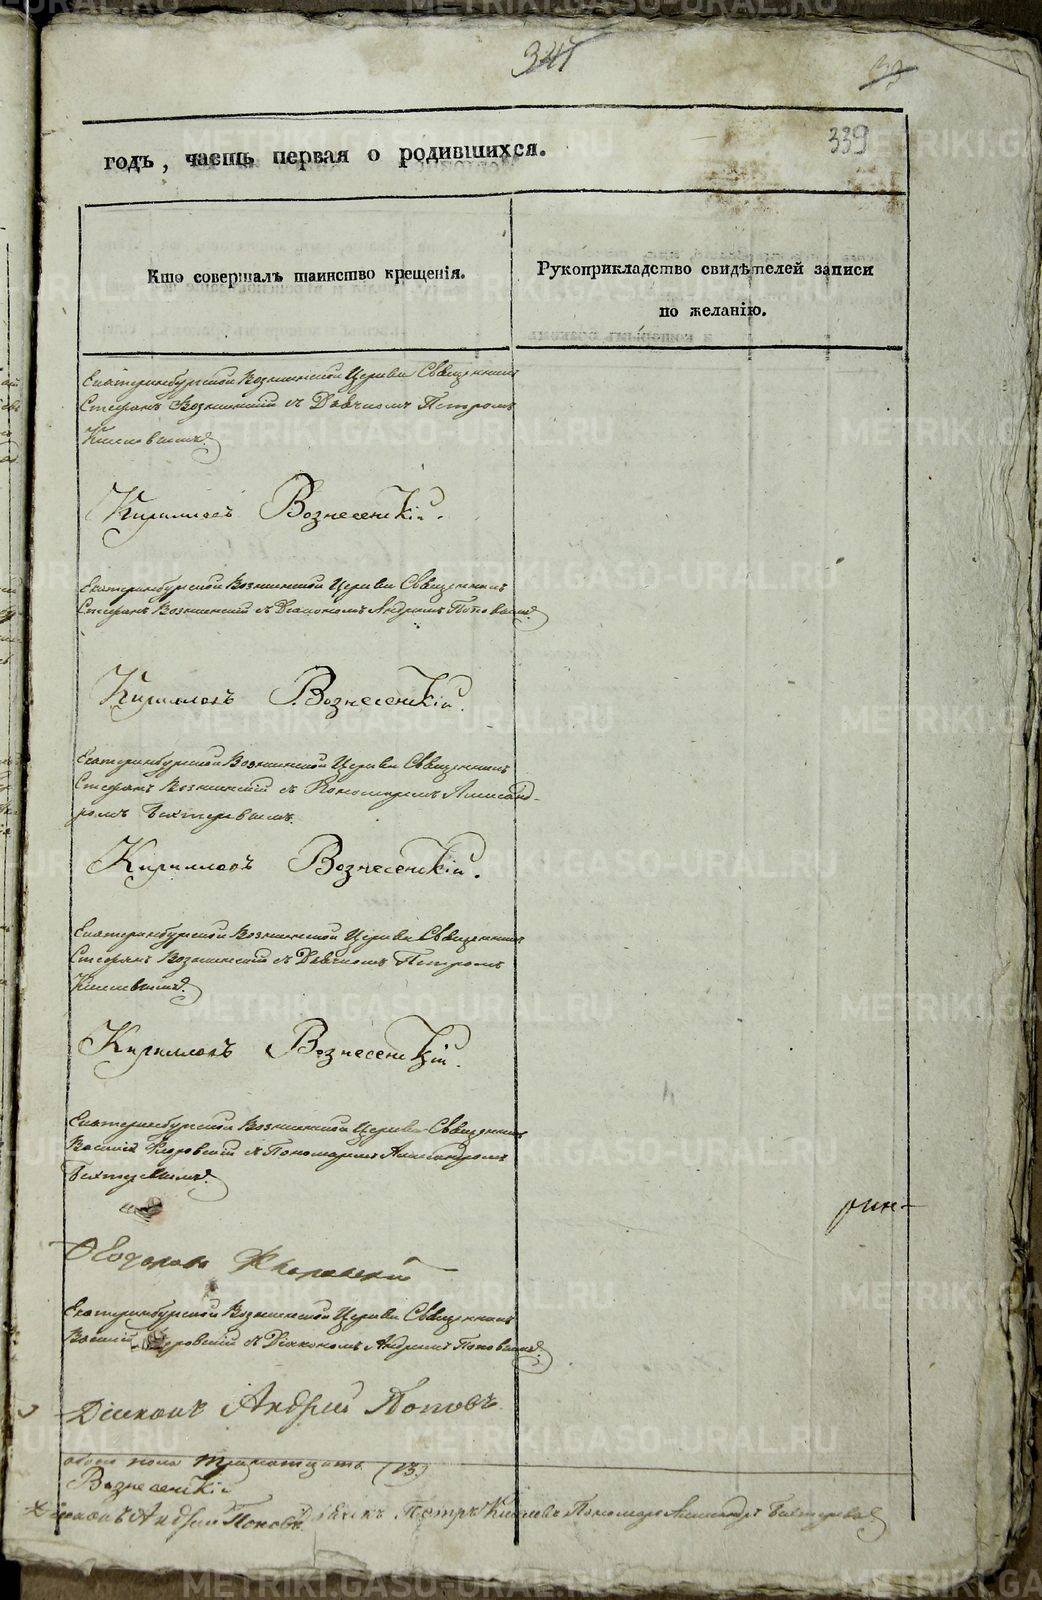 341
33
339
годъ, часть первая о родившихся.
Кто совершалъ таинство крещенія.
Рукоприкладство свидѣтелей записи
по желанію.
Екатеринбургской Вознесенской Церкви Священникъ
Стефанъ Вознесенскій съ Дьячкомъ Петромъ
Киселевымъ.
Кирилловъ Вознесенскій.
Екатеринбургской Вознесенской Церкви Священникъ
Стефанъ Вознесенскій съ Діакономъ Андреемъ Поповымъ.
Кирилловъ Вознесенскій.
Екатеринбургской Вознесенской Церкви Священникъ
Стефанъ Вознесенскій съ Пономаремъ Александ-
ромъ Бихтеревымъ.
Кирилловъ Вознесенскій.
Екатеринбургской Вознесенской Церкви Священникъ
Стефанъ Вознесенскій съ Дьячкомъ Петромъ
Киселевымъ.
Кирилловъ Вознесенскій.
Екатеринбургской Вознесенской Церкви Священникъ
Василій Флоровскій съ Пономаремъ Александромъ
Бихтеревымъ.
Ѳеодоровъ Флоровскій
Екатеринбургской Вознесенской Церкви Священникъ
Василій съ Діакономъ Андреемъ Поповымъ.
Діаконъ Андрей Поповъ
обоего пола тринатцать (13)
Вознесенскій
Діаконъ Андрей Поповъ Дьячекъ Петръ Киселевъ Пономарь Александръ Бихтеревъ
METRIKI.GASO-URAL.RU